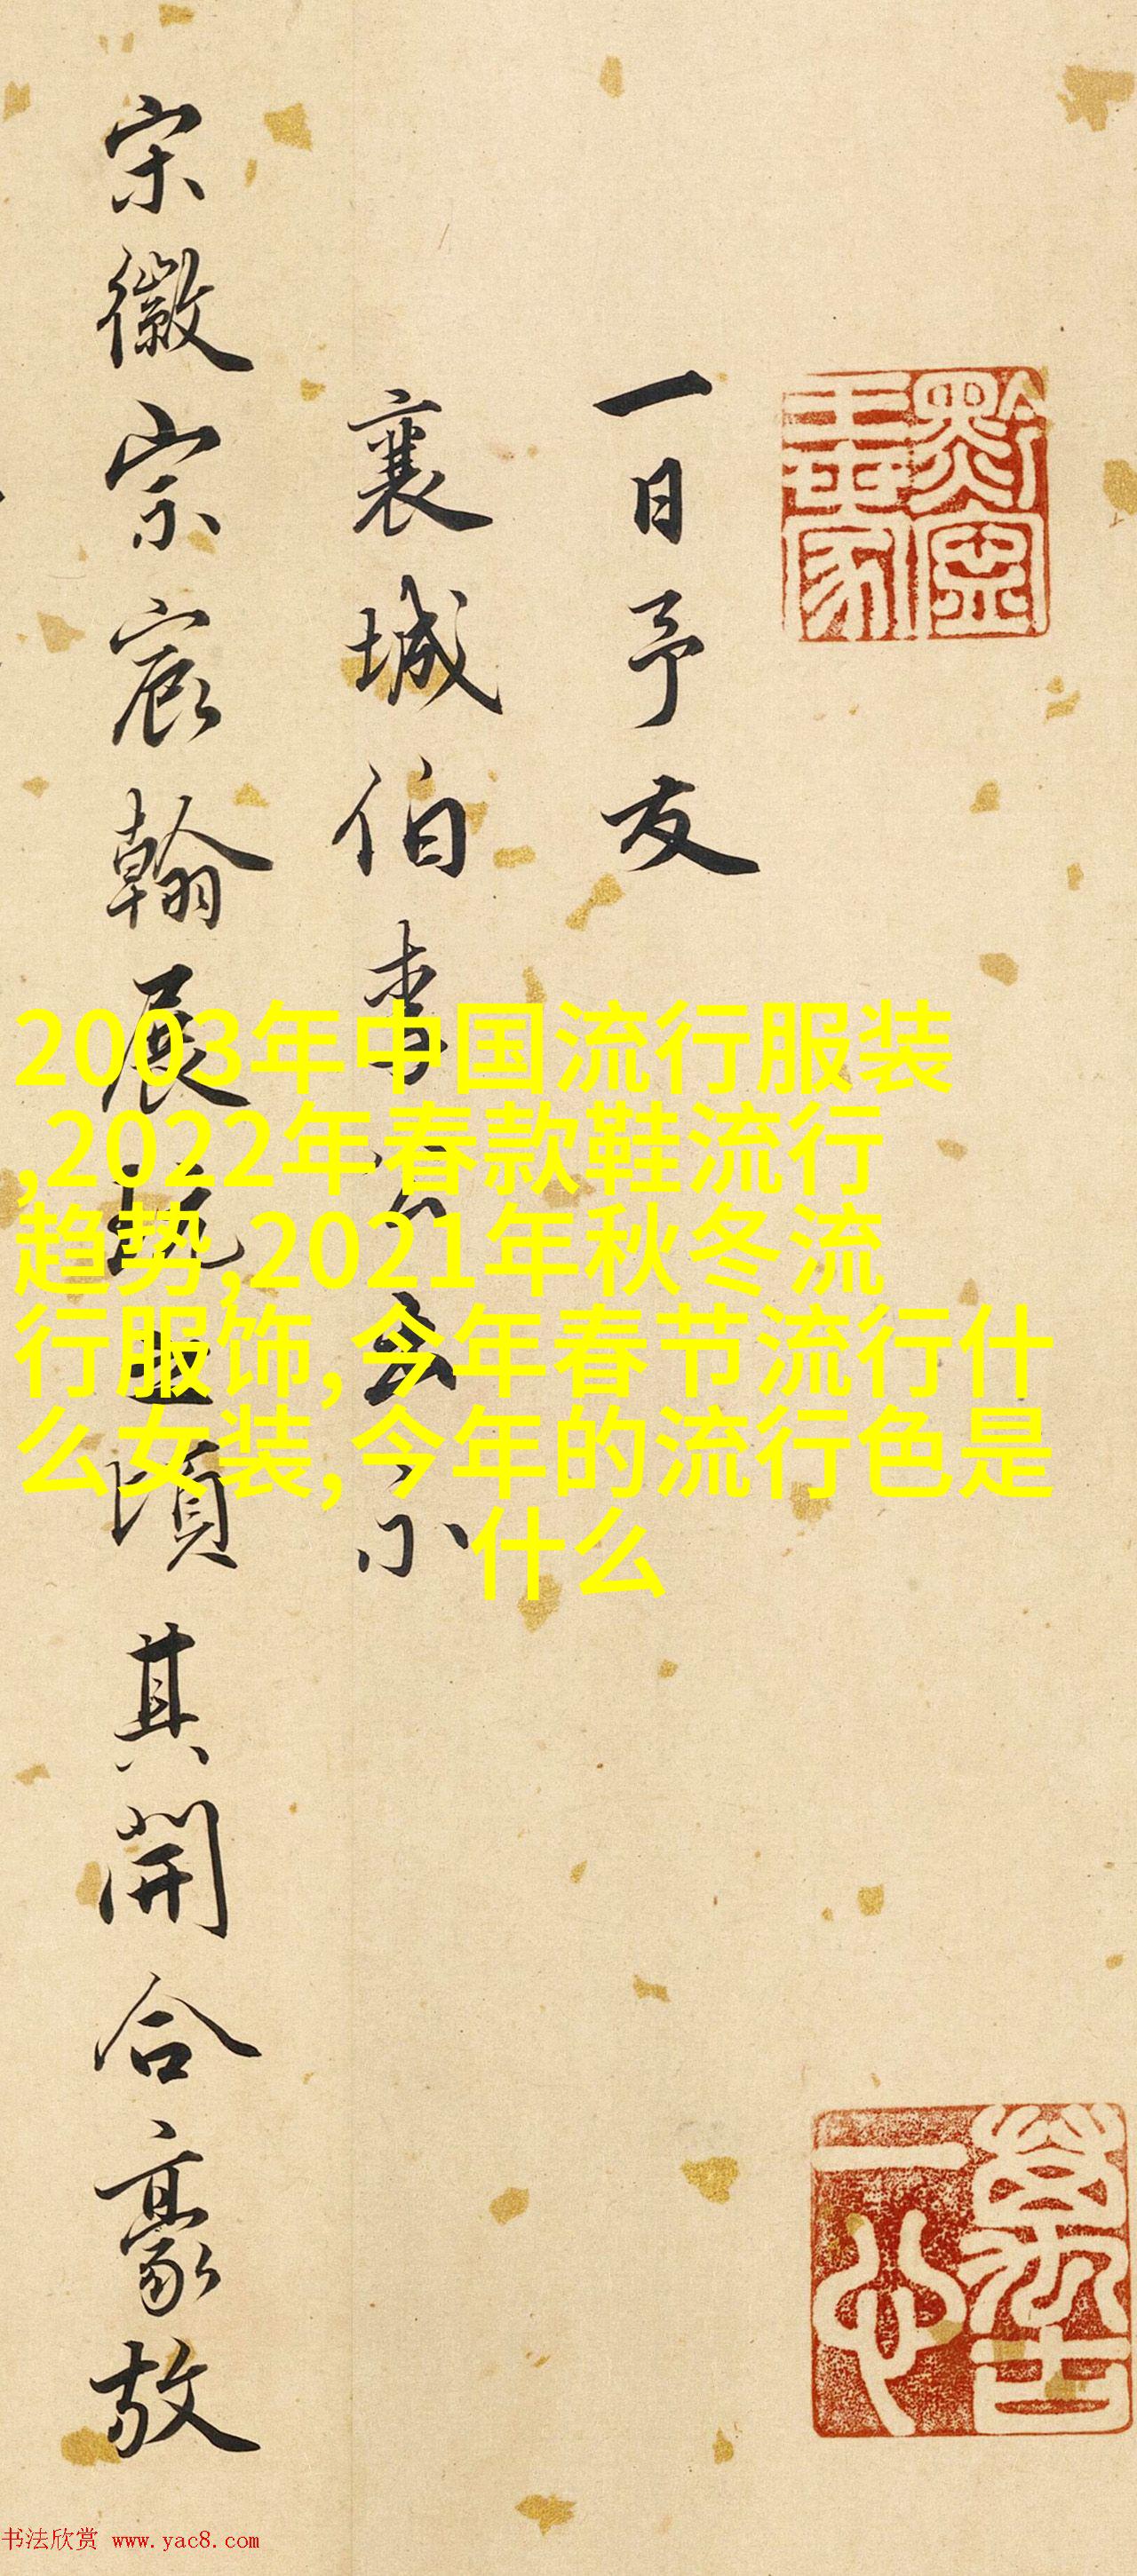 一日予友
襄城伯李公玄小
宋徽宗宸翰展玩之頃其開合豪放
2003年中国流行服装
,2022年春款鞋流行
趋势,2021年秋冬流
行服饰,今年春节流行什
么女装,今年的流行色是
什么
书法欣赏 www.yac8.com